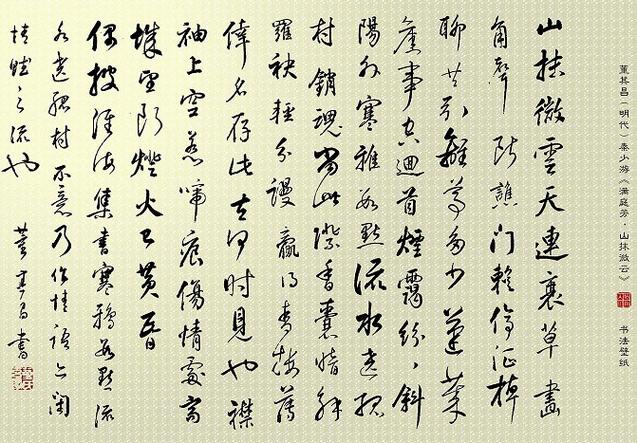 董其昌(明代)秦少游《满庭芳·山抹微云》 书法壁纸
山抹微雲天連衰草畫
角聲断譙門暫停征棹
聊共引離尊多少蓬萊
舊事空迴首煙靄紛紛斜
陽外寒鴉數點流水遶孤
村銷魂當此際香囊暗解
羅袂輕分謾贏得青樓薄
倖名存此去何時見也襟
袖上空惹啼痕傷情處高
城望断燈火已黄昏
偶披淮海集書寒鴉數點流
水遶孤村不意乃作情語亦閑
情賦之流也 董其昌書